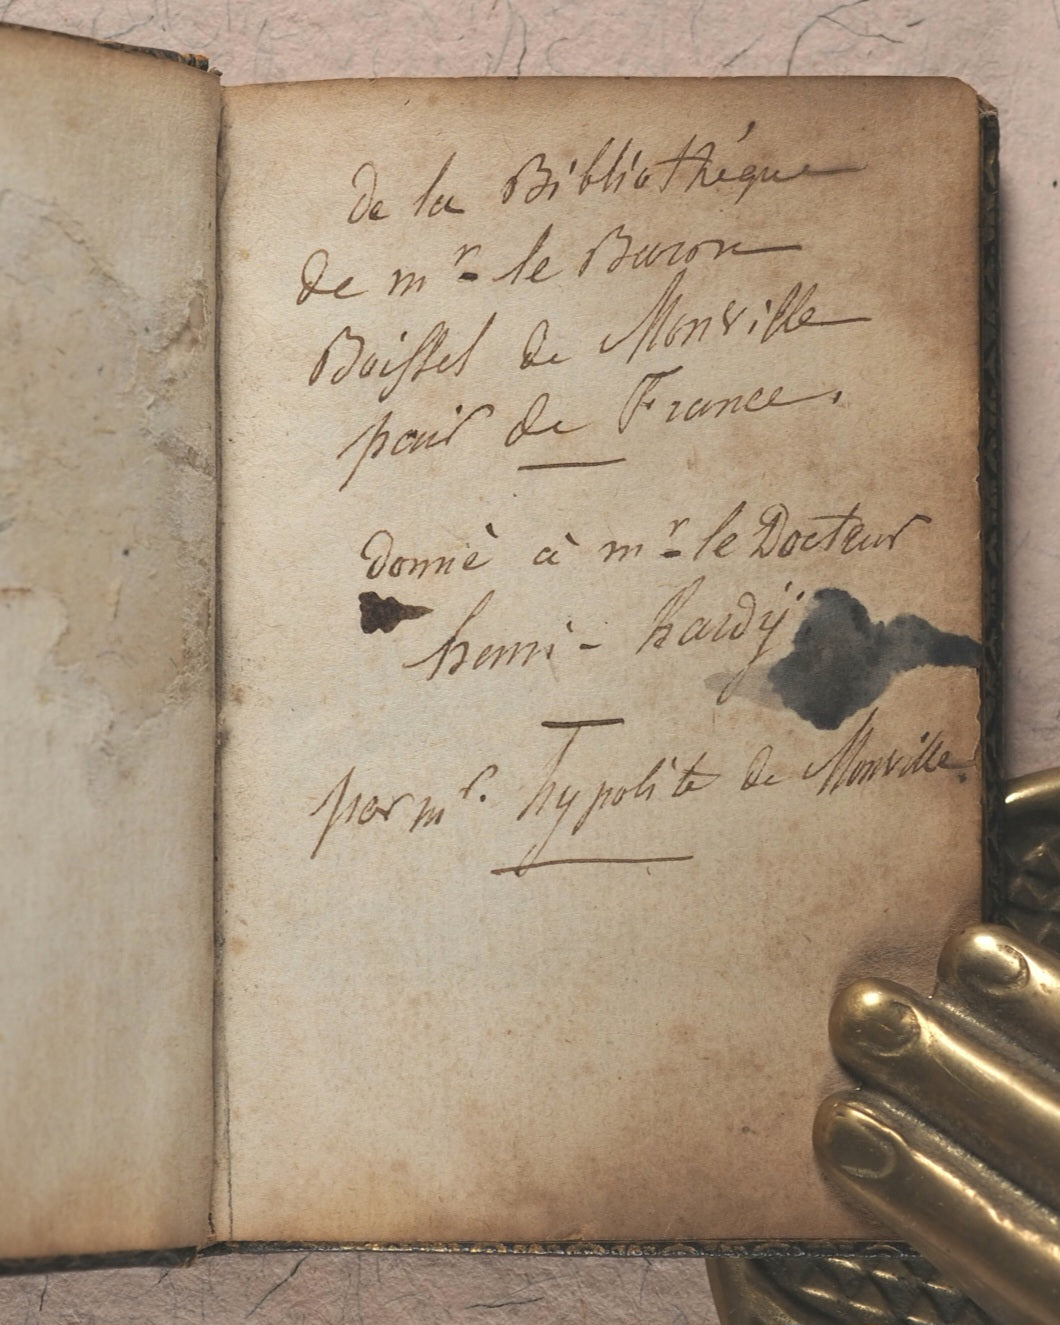 De la Bibliothéque
de mr. le Baron
Boissel de Monville
pair de France.
donné à mr. le Docteur
henri - hardÿ
par mr. hypolite de Monville.